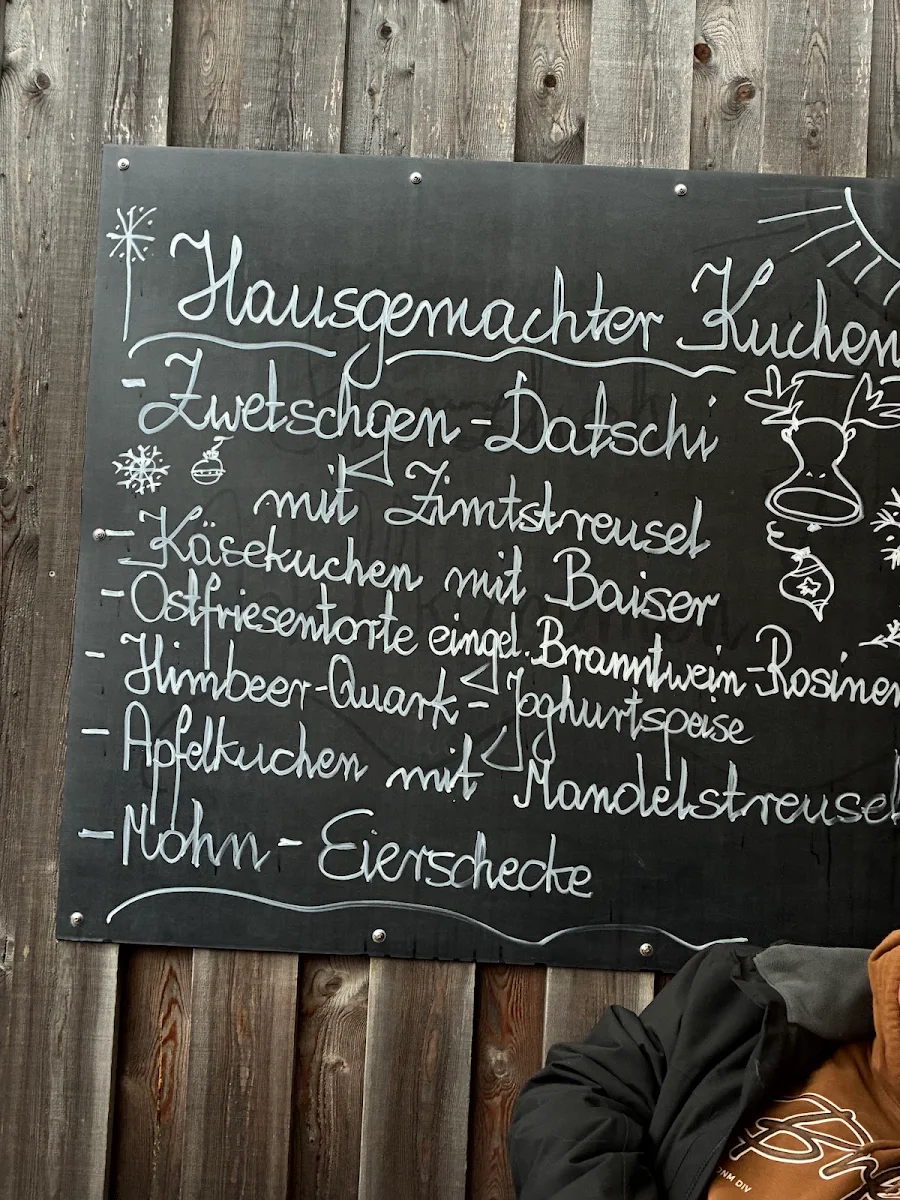 Hausgemachter Kuchen
- Zwetschgen-Datschi
mit Zimtstreusel
- Käsekuchen mit Baiser
- Ostfriesentorte eingel. Branntwein-Rosinen
- Himbeer-Quark-Joghurtspeise
- Apfelkuchen mit Mandelstreusel
- Mohn-Eierschecke
DNM DIV